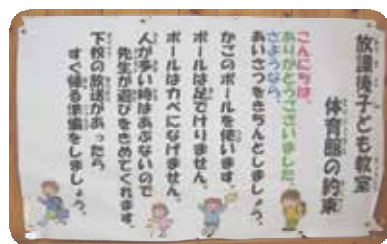 放課後子ども教室
体育館の約束
こんにちは。
ありがとうございました。
さようなら。
あいさつをきちんとしましょう。
かごのボールを使います。
ボールは足でけりません。
ボールはカベになげません。
人が多い時はあぶないので
先生が遊びをきめてくれます。
下校の放送があったら、
すぐ帰る準備をしましょう。